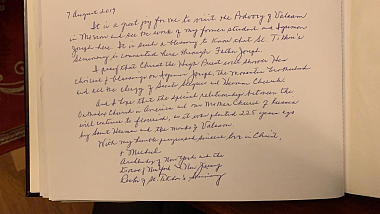 7 August 2019
It is a great joy for me to visit the Podvorye of Valaam
in Moscow and see the work of my former student and Igumen
Joseph here. It is such a blessing to know that St. Tikhon's
Seminary is connected here through Father Joseph.
I pray that Christ the High Priest will shower His
choicest blessings on Igumen Joseph, the Monastic Brotherhood
and all the clergy of Saints Sergius and Herman Church.
And I hope that the special relationship between the
Orthodox Church in America and our Mother Church of Russia
will continue to flourish, as it was planted 225 years ago
by Saint Herman and the monks of Valaam.
With my humble prayers and sincere love in Christ,
+ Michael
Archbishop of New York and the
Diocese of New York & New Jersey
Rector of St. Tikhon's Seminary